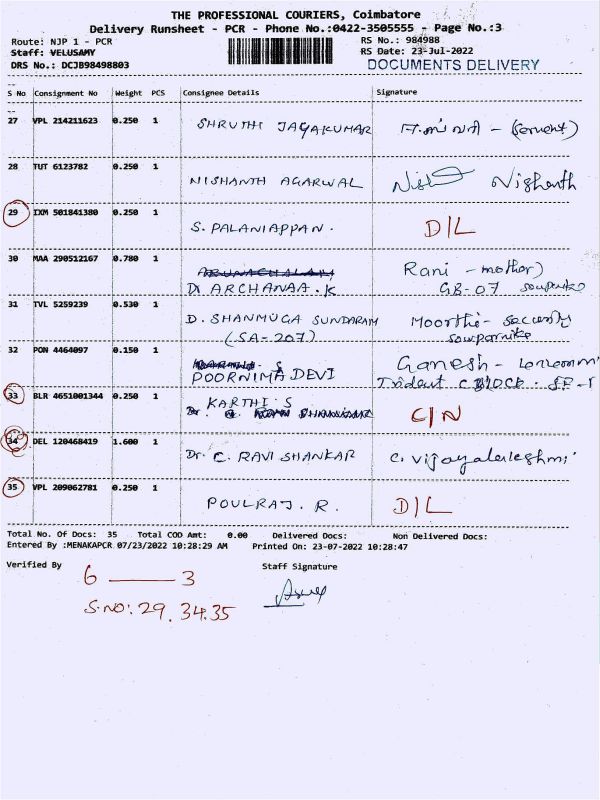 THE PROFESSIONAL COURIERS, Coimbatore
Delivery Runsheet - PCR - Phone No.:0422-3505555 - Page No.:3
Route: NJP 1 - PCR RS No.: 984988
Staff: VELUSAMY RS Date: 23-Jul-2022
DRS No.: DCJB98498803 DOCUMENTS DELIVERY
S No Consignment No Weight PCS Consignee Details Signature
27 VPL 214211623 0.250 1 SHRUTHI JAYAKUMAR - (servent)
28 TUT 6123782 0.250 1 NISHANTH AGARWAL Nishanth
29 IXM 501841380 0.250 1 S. PALANIAPPAN. D/L
30 MAA 290512167 0.780 1 Rani - mother)
D. ARCHANAA.K GB-07
31 TVL 5259239 0.530 1 D. SHANMUGA SUNDARAM Moorthi - security
(SA-207) sowparnike
32 PON 4464097 0.150 1 S Ganesh -
POORNIMA DEVI Trident C BLOCK.
33 BLR 4651001344 0.250 1 KARTHI S C/N
34 DEL 120468419 1.600 1 Dr. C. RAVI SHANKAR C. Vijayalakshmi
35 VPL 209062781 0.250 1 POULRAJ. R. D/L
Total No. Of Docs: 35 Total COD Amt: 0.00 Delivered Docs: Non Delivered Docs:
Entered By :MENAKAPCR 07/23/2022 10:28:29 AM Printed On: 23-07-2022 10:28:47
Verified By Staff Signature
6 — 3
S.NO: 29. 34.35